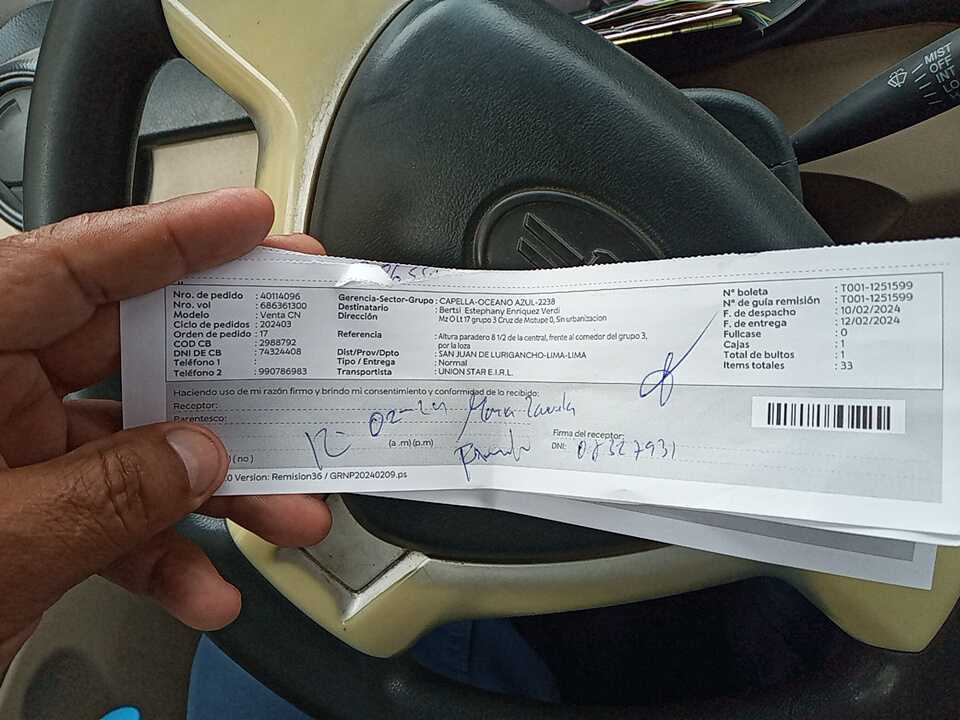 MIST
OFF
INT
LO
Nro. de pedido : 40114096
Nro. vol : 686361300
Modelo : Venta CN
Ciclo de pedidos : 202403
Orden de pedido : 17
COD CB : 2988792
DNI DE CB : 74324408
Teléfono 1 :
Teléfono 2 : 990786983
Gerencia-Sector-Grupo : CAPELLA-OCEANO AZUL-2238
Destinatario : Bertsi Estephany Enriquez Verdi
Dirección : Mz O Lt 17 grupo 3 Cruz de Motupe 0, Sin urbanizacion
Referencia : Altura paradero 8 1/2 de la central, frente al comedor del grupo 3,
por la loza
Dist/Prov/Dpto : SAN JUAN DE LURIGANCHO-LIMA-LIMA
Tipo / Entrega : Normal
Transportista : UNION STAR E.I.R.L.
N° boleta : T001-1251599
N° de guía remisión : T001-1251599
F. de despacho : 10/02/2024
F. de entrega : 12/02/2024
Fullcase : 0
Cajas : 1
Total de bultos : 1
Items totales : 33
Haciendo uso de mi razón firmo y brindo mi consentimiento y conformidad de lo recibido:
Receptor:
Parentesco:
12- 02-24
(a .m) (p.m)
Firma del receptor:
DNI: 08327931
( no )
.0 Version: Remision36 / GRNP20240209.ps